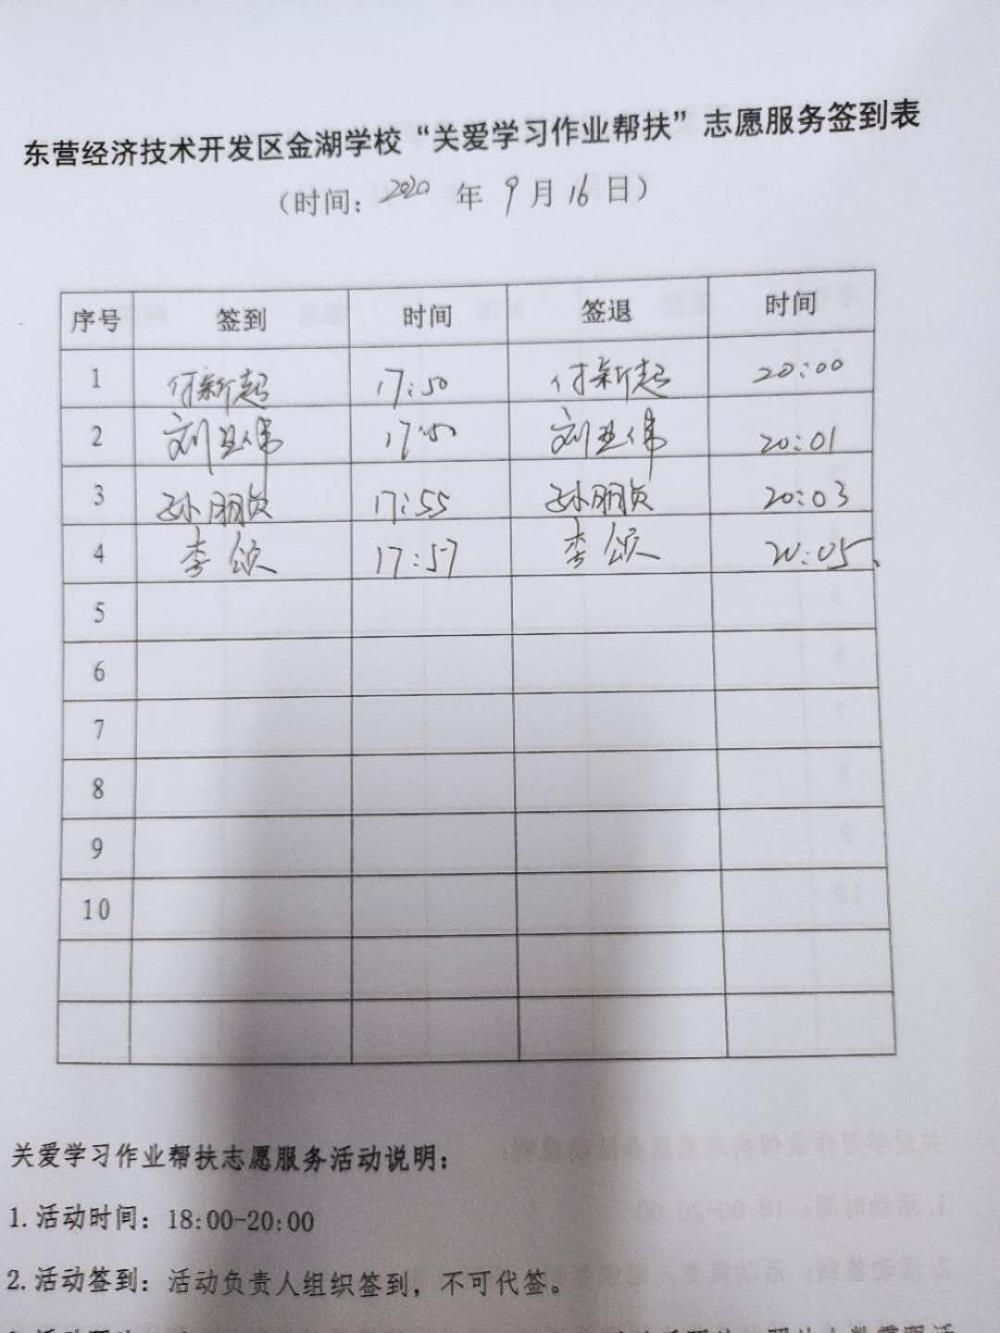 东营经济技术开发区金湖学校“关爱学习作业帮扶”志愿服务签到表
（时间：2020 年 9 月 16 日）
序号 签到 时间 签退 时间
1 付新起 17:50 付新起 20:00
2 刘亚伟 17:50 刘亚伟 20:01
3 孙朋贞 17:55 孙朋贞 20:03
4 李颂 17:57 李颂 20:05
5
6
7
8
9
10
关爱学习作业帮扶志愿服务活动说明：
1.活动时间：18:00-20:00
2.活动签到：活动负责人组织签到，不可代签。